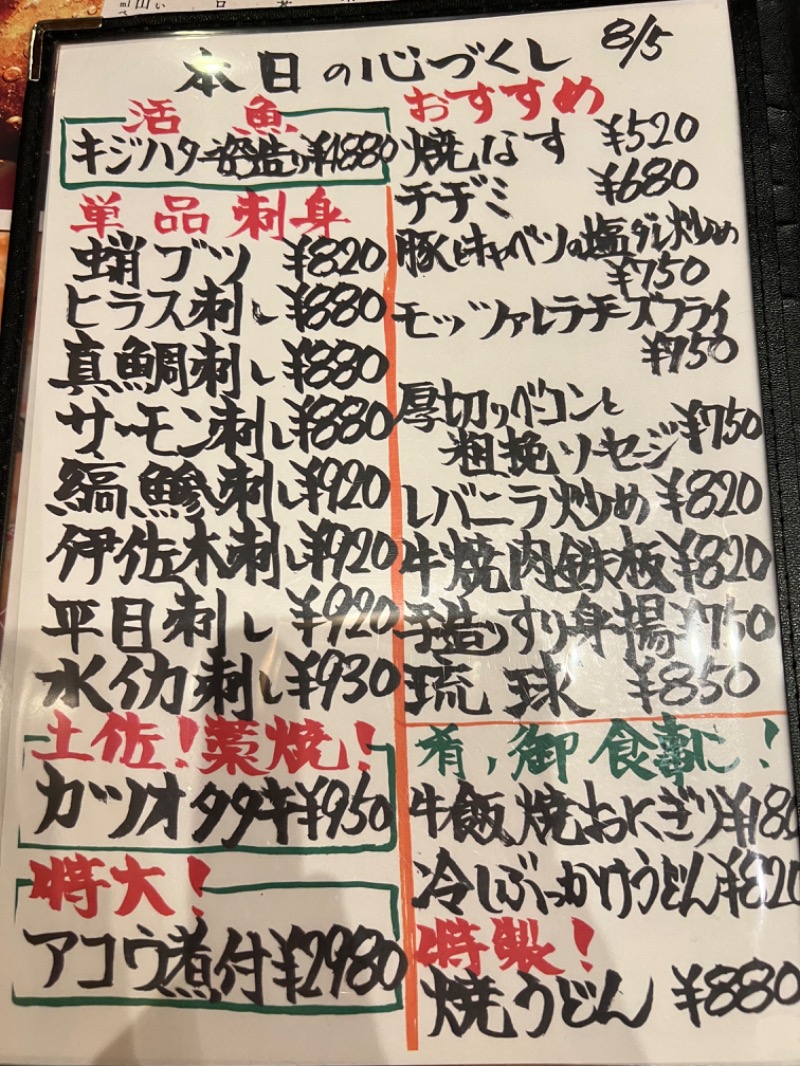 本日の心づくし 8/5
活魚
キジハタ姿造り ¥1880
単品刺身
蛸ブツ ¥820
ヒラス刺し ¥880
真鯛刺し ¥880
サーモン刺し ¥880
縞鯵刺し ¥920
伊佐木刺し ¥920
平目刺し ¥920
水イカ刺し ¥930
土佐!藁焼!
カツオタタキ ¥950
特大!
アコウ煮付 ¥2980
おすすめ
焼なす ¥520
チヂミ ¥680
豚とキャベツの塩ダレ炒め
¥750
モッツァレラチーズフライ
¥750
厚切りベーコンと
粗挽ソーセージ ¥750
レバニラ炒め ¥820
牛焼肉鉄板 ¥820
手造りすり身揚 ¥750
琉球 ¥850
肴,御食事に!
牛飯焼おにぎり ¥180
冷しぶっかけうどん ¥820
特製!
焼うどん ¥880